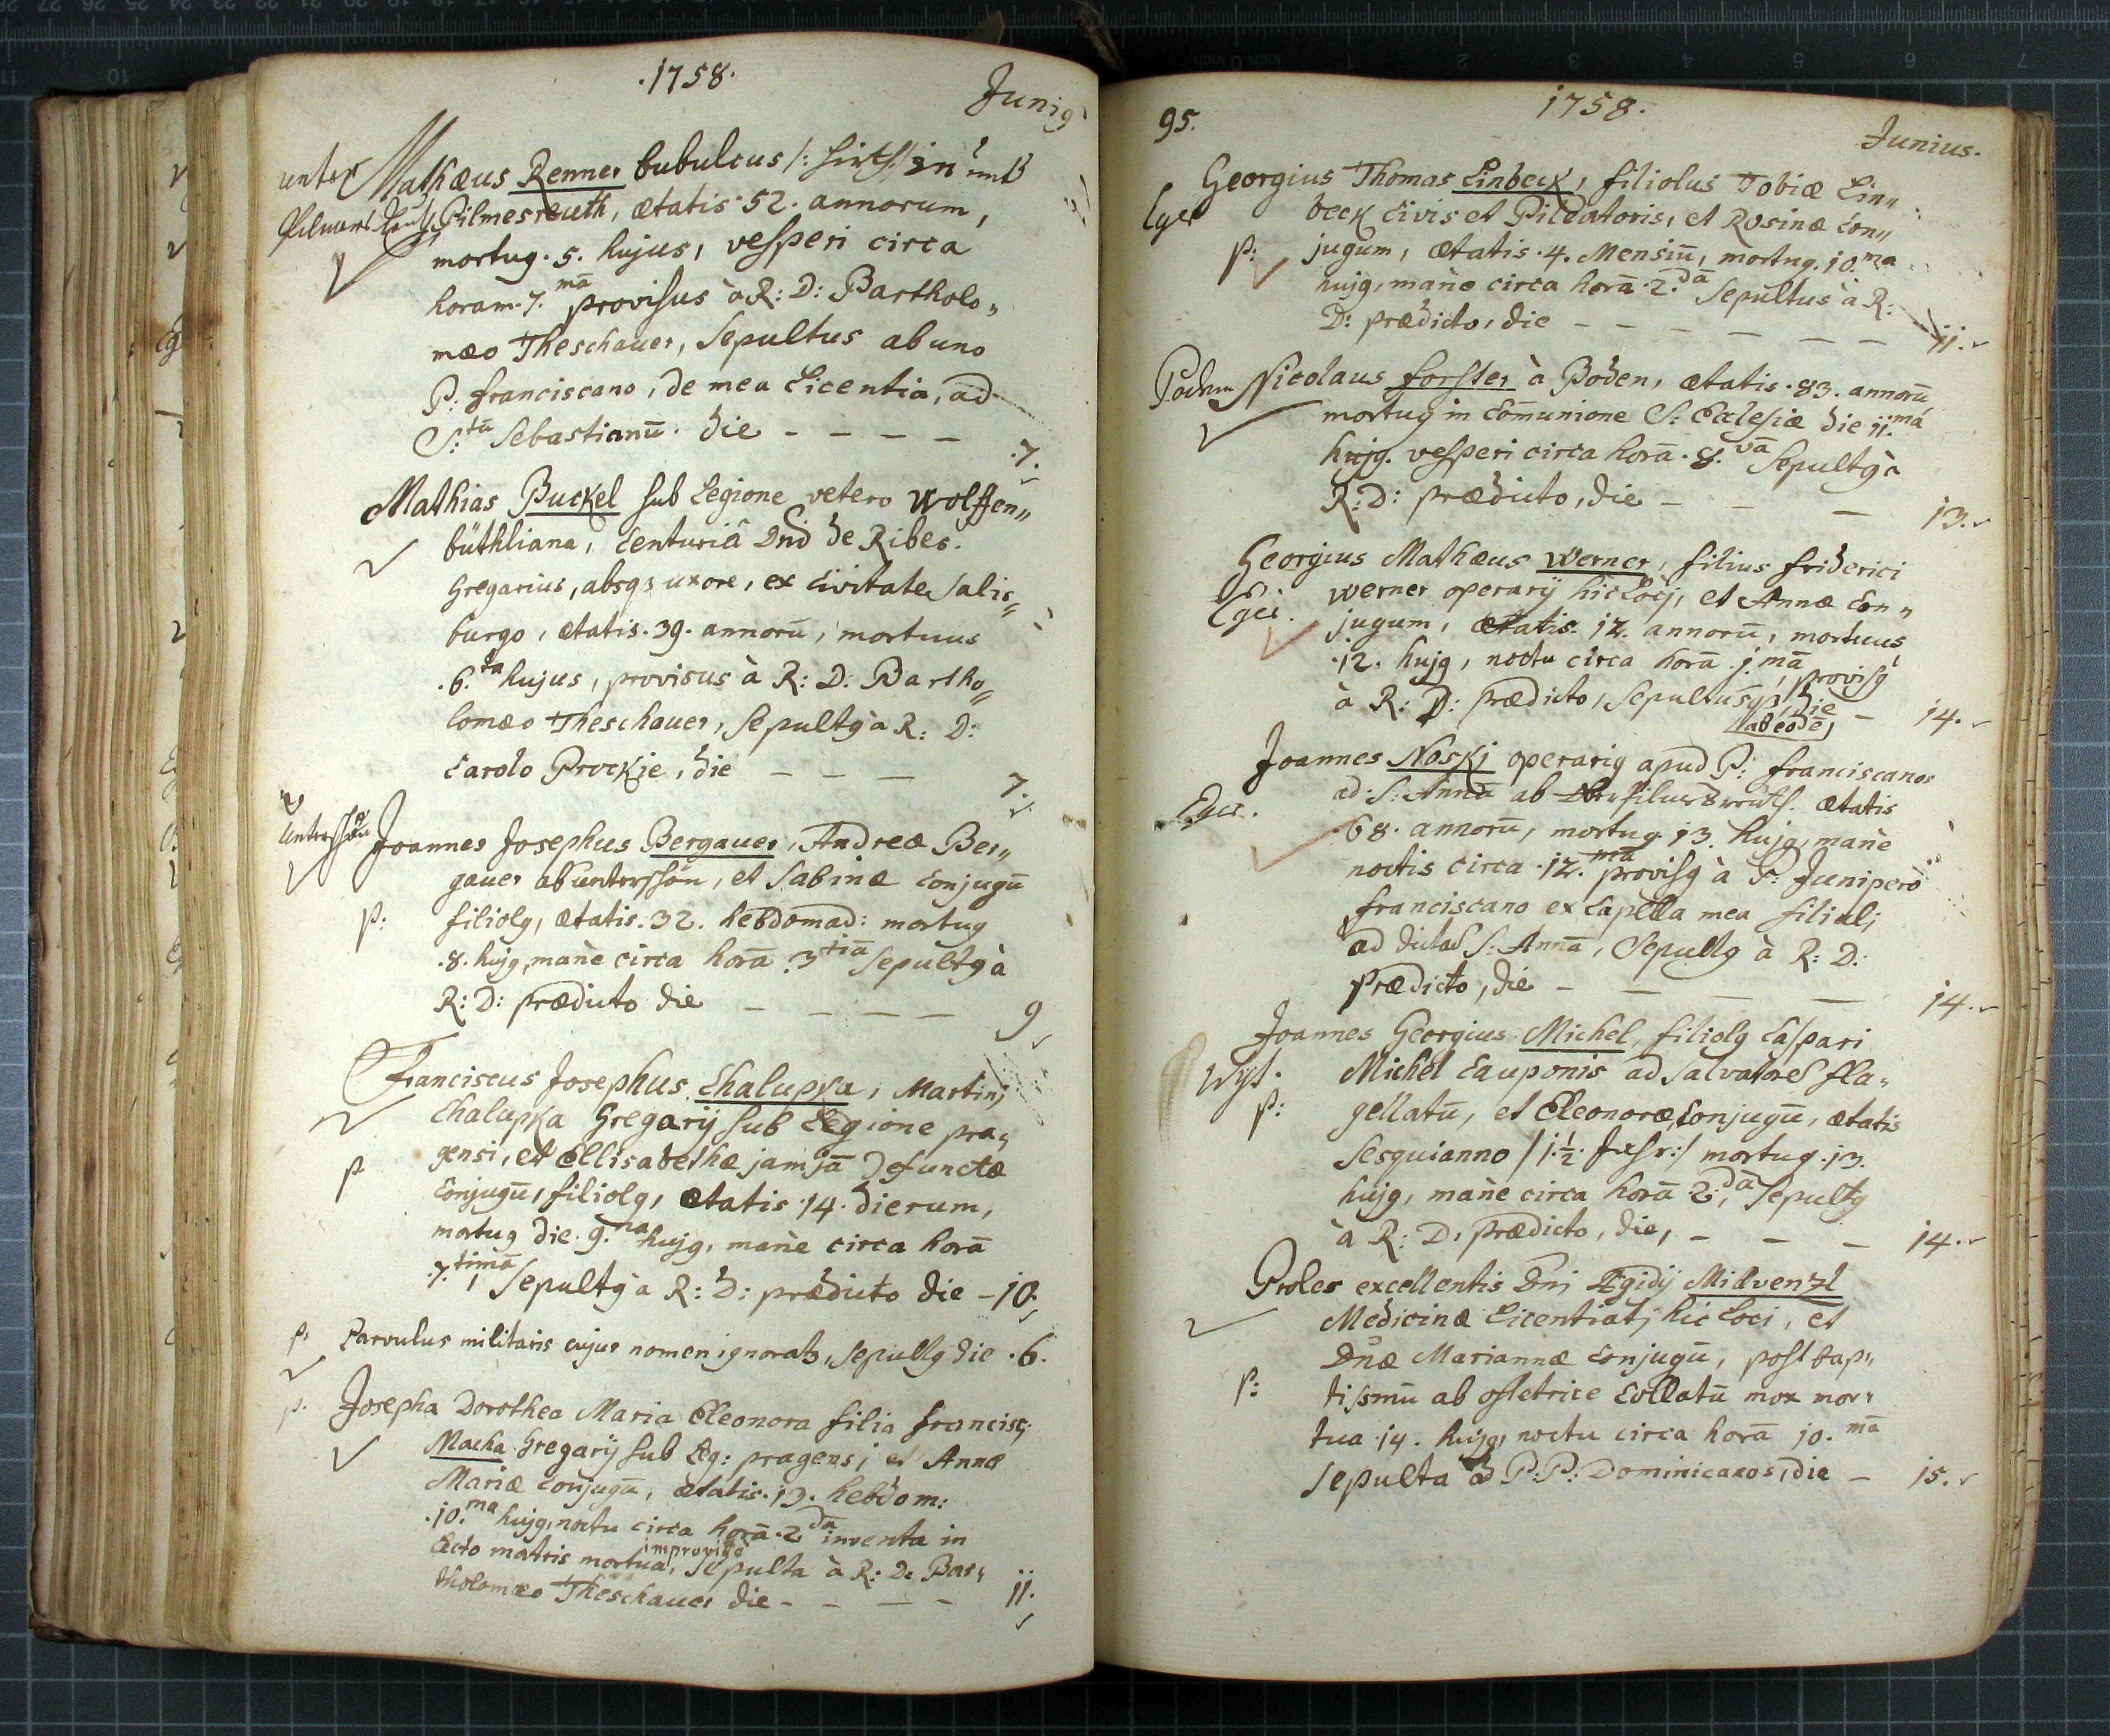 .1758.
Juni9
unter
Mathæus Renner bubulcus /: hirth :/ in unt
Pilmersreuth
Pilmesreuth, ætatis 52. annorum,
mortu9 .5. hujus, vesperi circa
horam .7.mā provisus à R: D: Bartholo„
mæo Theschauer, Sepultus ab uno
P: franciscano, de mea Licentia, ad
S:tū Sebastianū. die – – – – .7.
Mathias Buckel sub Legione vetero Wolffen„
büthliana, Centuriâ Dni de Ribes.
Gregarius, absq3 uxore, ex Civitate Salis„
burgo, ætatis .39. annorū, mortuus
.6.ta hujus, provisus à R: D: Bartho„
lomæo Theschauer, Sepult9 à R: D:
Carolo Prockje, die – – – 7.
Unterschön
Joannes Josephus Bergauer, Andreæ Ber„
gauer ab unterschön, et Sabinæ Conjugū
p: filiol9, ætatis .32. hebdomad: mortu9
.8. huj9, manè circa horā .3.tiā Sepult9 à
R: D: prædicto die – – – – 9
Franciscus Josephus Chalupka, Martinj
Chalupka Gregarij sub Legione pra„
p. gensi, et Ellisabethæ jamjā Defunctæ
Conjugū, filiol9, ætatis 14. dierum,
mortu9 die .9.na huj9, manè circa horā
.7.timā, Sepult9 à R: D: prædicto die – 10.
p: Parvulus militaris cujus nomen ignorat3, Sepult9 die .6.
p. Josepha Dorothea Maria Eleonora filia francisci
Macha Gregarij sub Leg: pragensi et Annæ
Mariæ Conjugū, ætatis .13. hebdom:
.10.ma huj9, noctu circa horā .2.da inventa in
Lecto matris mortua, improvisò Sepulta à R: D. Bar„
tholomæo Theschauer die – – – – 11.
95.
1758.
Junius.
Georgius Thomas Linbeck, filiolus Tobiæ Lin„
Eger
beck Civis et Pileatoris, et Rosinæ Con„
p: jugum, ætatis .4. Mensiū, mortu9 .10.ma
huj9, manè circa horā .2.dā Sepultus à R:
D: prædicto, die – – – – – – 11.
Poden
Nicolaus forster à Boden, ætatis .83. annorū
mortu9 in Communione S: Ecclesiæ die 11.má
huj9. vesperi circa horā .8.vā Sepult9 à
R: D: prædicto, die – – – 13.
Georgius Mathæus Werner, filius friderici
Eger.
Werner operarij hic Locj, et Annæ Con„
jugum, ætatis 12. annorū, mortuus
.12. huj9, noctu circa horā .1.mā, provis9
à R: D: prædicto, Sepultus ab eodē, die – 14.
Joannes Noskj operari9 apud P: franciscanos
Eger.
ad S: Annā ab Ober Pilmersreuth. ætatis
.68. annorū, mortu9 13. huj9, manè
noctis circa .12.mā provis9 à P: Junipero
franciscano ex Capella mea filiali
ad dictā S: Annā, Sepult9 à R: D:
prædicto, die – – – – 14.
Joannes Georgius Michel, filiol9 Caspari
Wijs.
Michel Cauponis ad Salvatorē fla„
p: gellatū, et Eleonoræ, Conjugū, ætatis
Sesquianno /: 1½. Jahr :/ mortu9 .13.
huj9, manè circa horā .2.dā, Sepult9
à R: D: prædicto, die, – – – 14.
Proles excellentis Dnj Ægidij Milvenzl
Medicinæ Licentiatj hic Loci, et
Dnæ Mariannæ Conjugū, post bap„
p: tismū ab obstetrice Collatū mox mor„
tua 14. huj9, noctu circa horā 10.mā
Sepulta ad P:P: Dominicanos, die – 15.